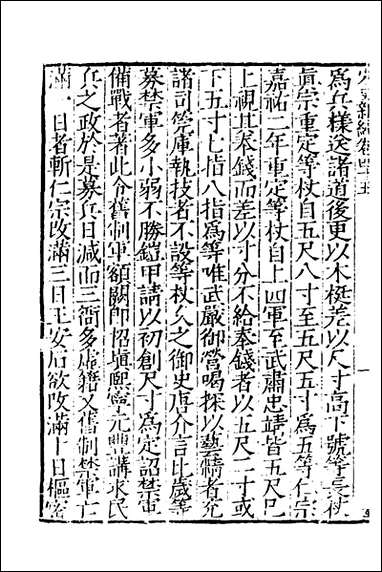 爲兵樣送諸道後更以木梃差以尺寸高下號等長杖
眞宗重定等杖自五尺八寸至五尺五寸爲五等仁宗
嘉祐二年重定等杖自上四軍至武肅忠靖皆五尺巳
上視其奉錢而差以寸分不給奉錢者以五尺二寸或
下五寸七指八指爲等唯武嚴御營喝探以藝精者充
諸司筦庫執技者不設等杖久之御史唐介言比歲等
募禁軍多小弱不勝鎧甲請以初創尺寸爲定詔禁軍
備戰者著此令舊制軍額闕卽招塡熙寧元豐講求民
兵之政於是募兵日減而三衙多虛籍又舊制禁軍亡
滿一日者斬仁宗改滿三日王安石欲改滿十日樞密